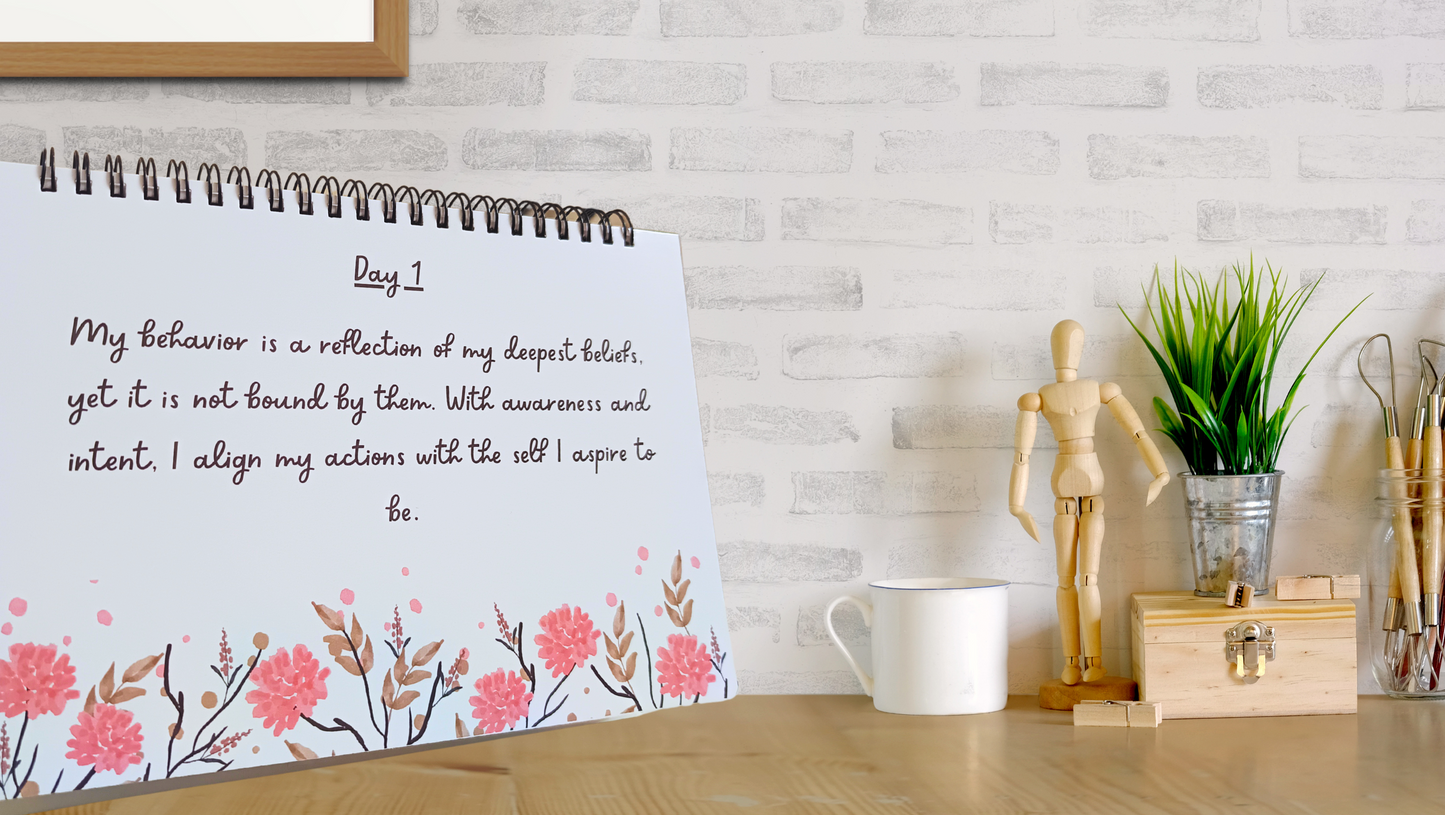 Day 1
My behavior is a reflection of my deepest beliefs,
yet it is not bound by them. With awareness and
intent, I align my actions with the self I aspire to
be.